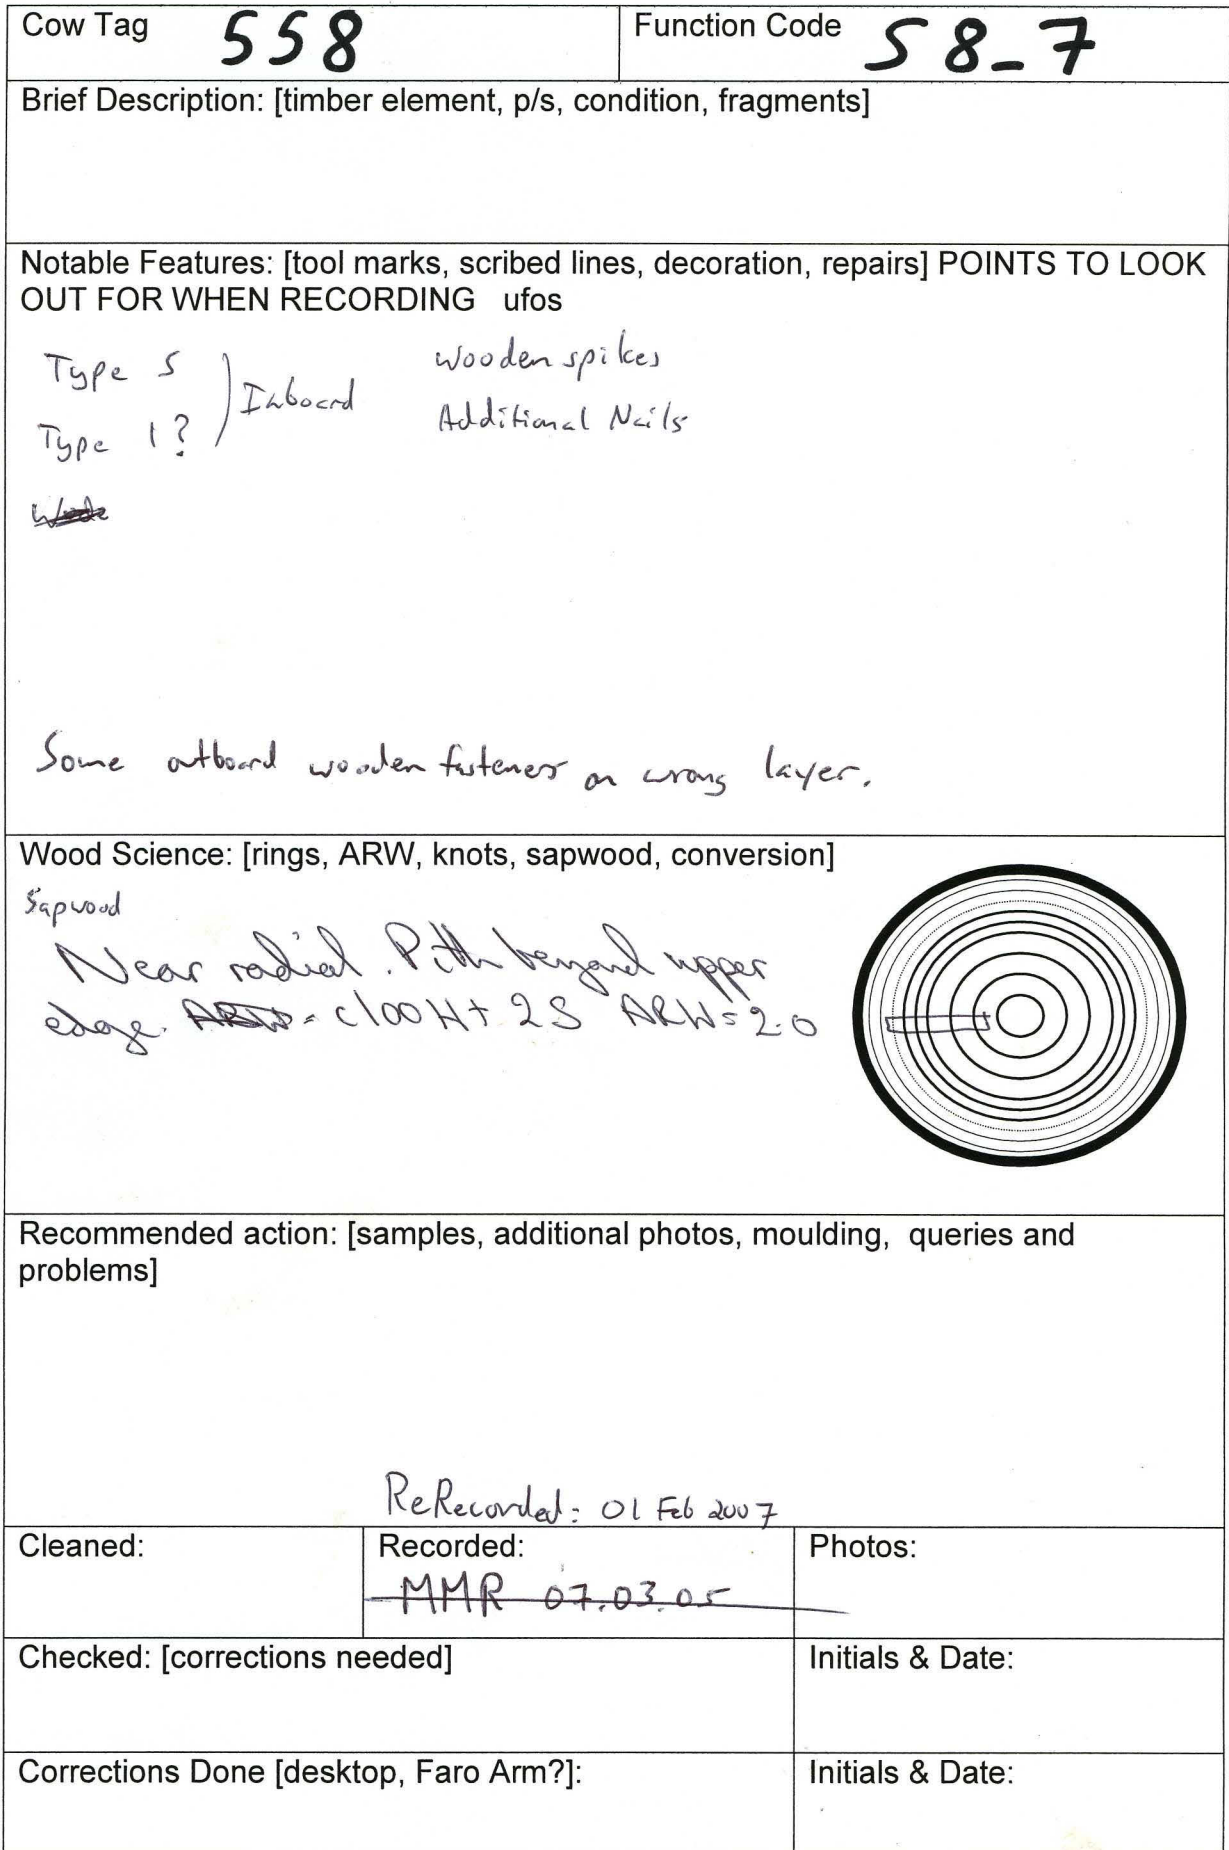 Cow Tag 558 Function Code S8_7
Brief Description: [timber element, p/s, condition, fragments]
Notable Features: [tool marks, scribed lines, decoration, repairs] POINTS TO LOOK
OUT FOR WHEN RECORDING ufos
Type 5
Type 1?
Inboard
Wooden spikes
Additional Nails
Some outboard wooden fasteners on wrong layer.
Wood Science: [rings, ARW, knots, sapwood, conversion]
Sapwood
Near radial. Pith beyond upper
edge. ARW = c100 H + 2S ARW = 2.0
Recommended action: [samples, additional photos, moulding, queries and
problems]
ReRecorded: 01 Feb 2007
Cleaned: Recorded: Photos:
MMR 07.03.05
Checked: [corrections needed] Initials & Date:
Corrections Done [desktop, Faro Arm?]: Initials & Date: